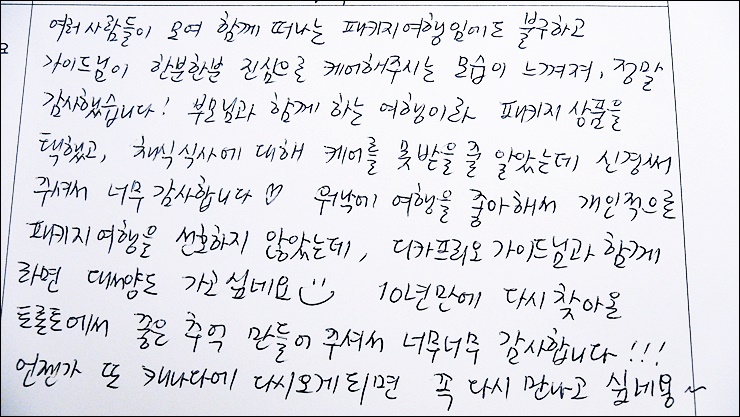 여러사람들이 모여 함께 떠나는 패키지여행임에도 불구하고
가이드님이 한분한분 진심으로 케어해주시는 모습이 느껴져, 정말
감사했습니다! 부모님과 함께 하는 여행이라 패키지 상품을
택했고, 채식식사에 대해 케어를 못받을 줄 알았는데 신경써
주셔서 너무 감사합니다♡ 워낙에 여행을 좋아해서 개인적으로
패키지여행을 선호하지 않았는데, 디카프리오 가이드님과 함께
라면 대서양도 가고싶네요☺ 10년만에 다시 찾아올
토론토에서 좋은 추억 만들어 주셔서 너무너무 감사합니다!!!
언젠가 또 캐나다에 다시오게되면 꼭 다시 만나고 싶네용~